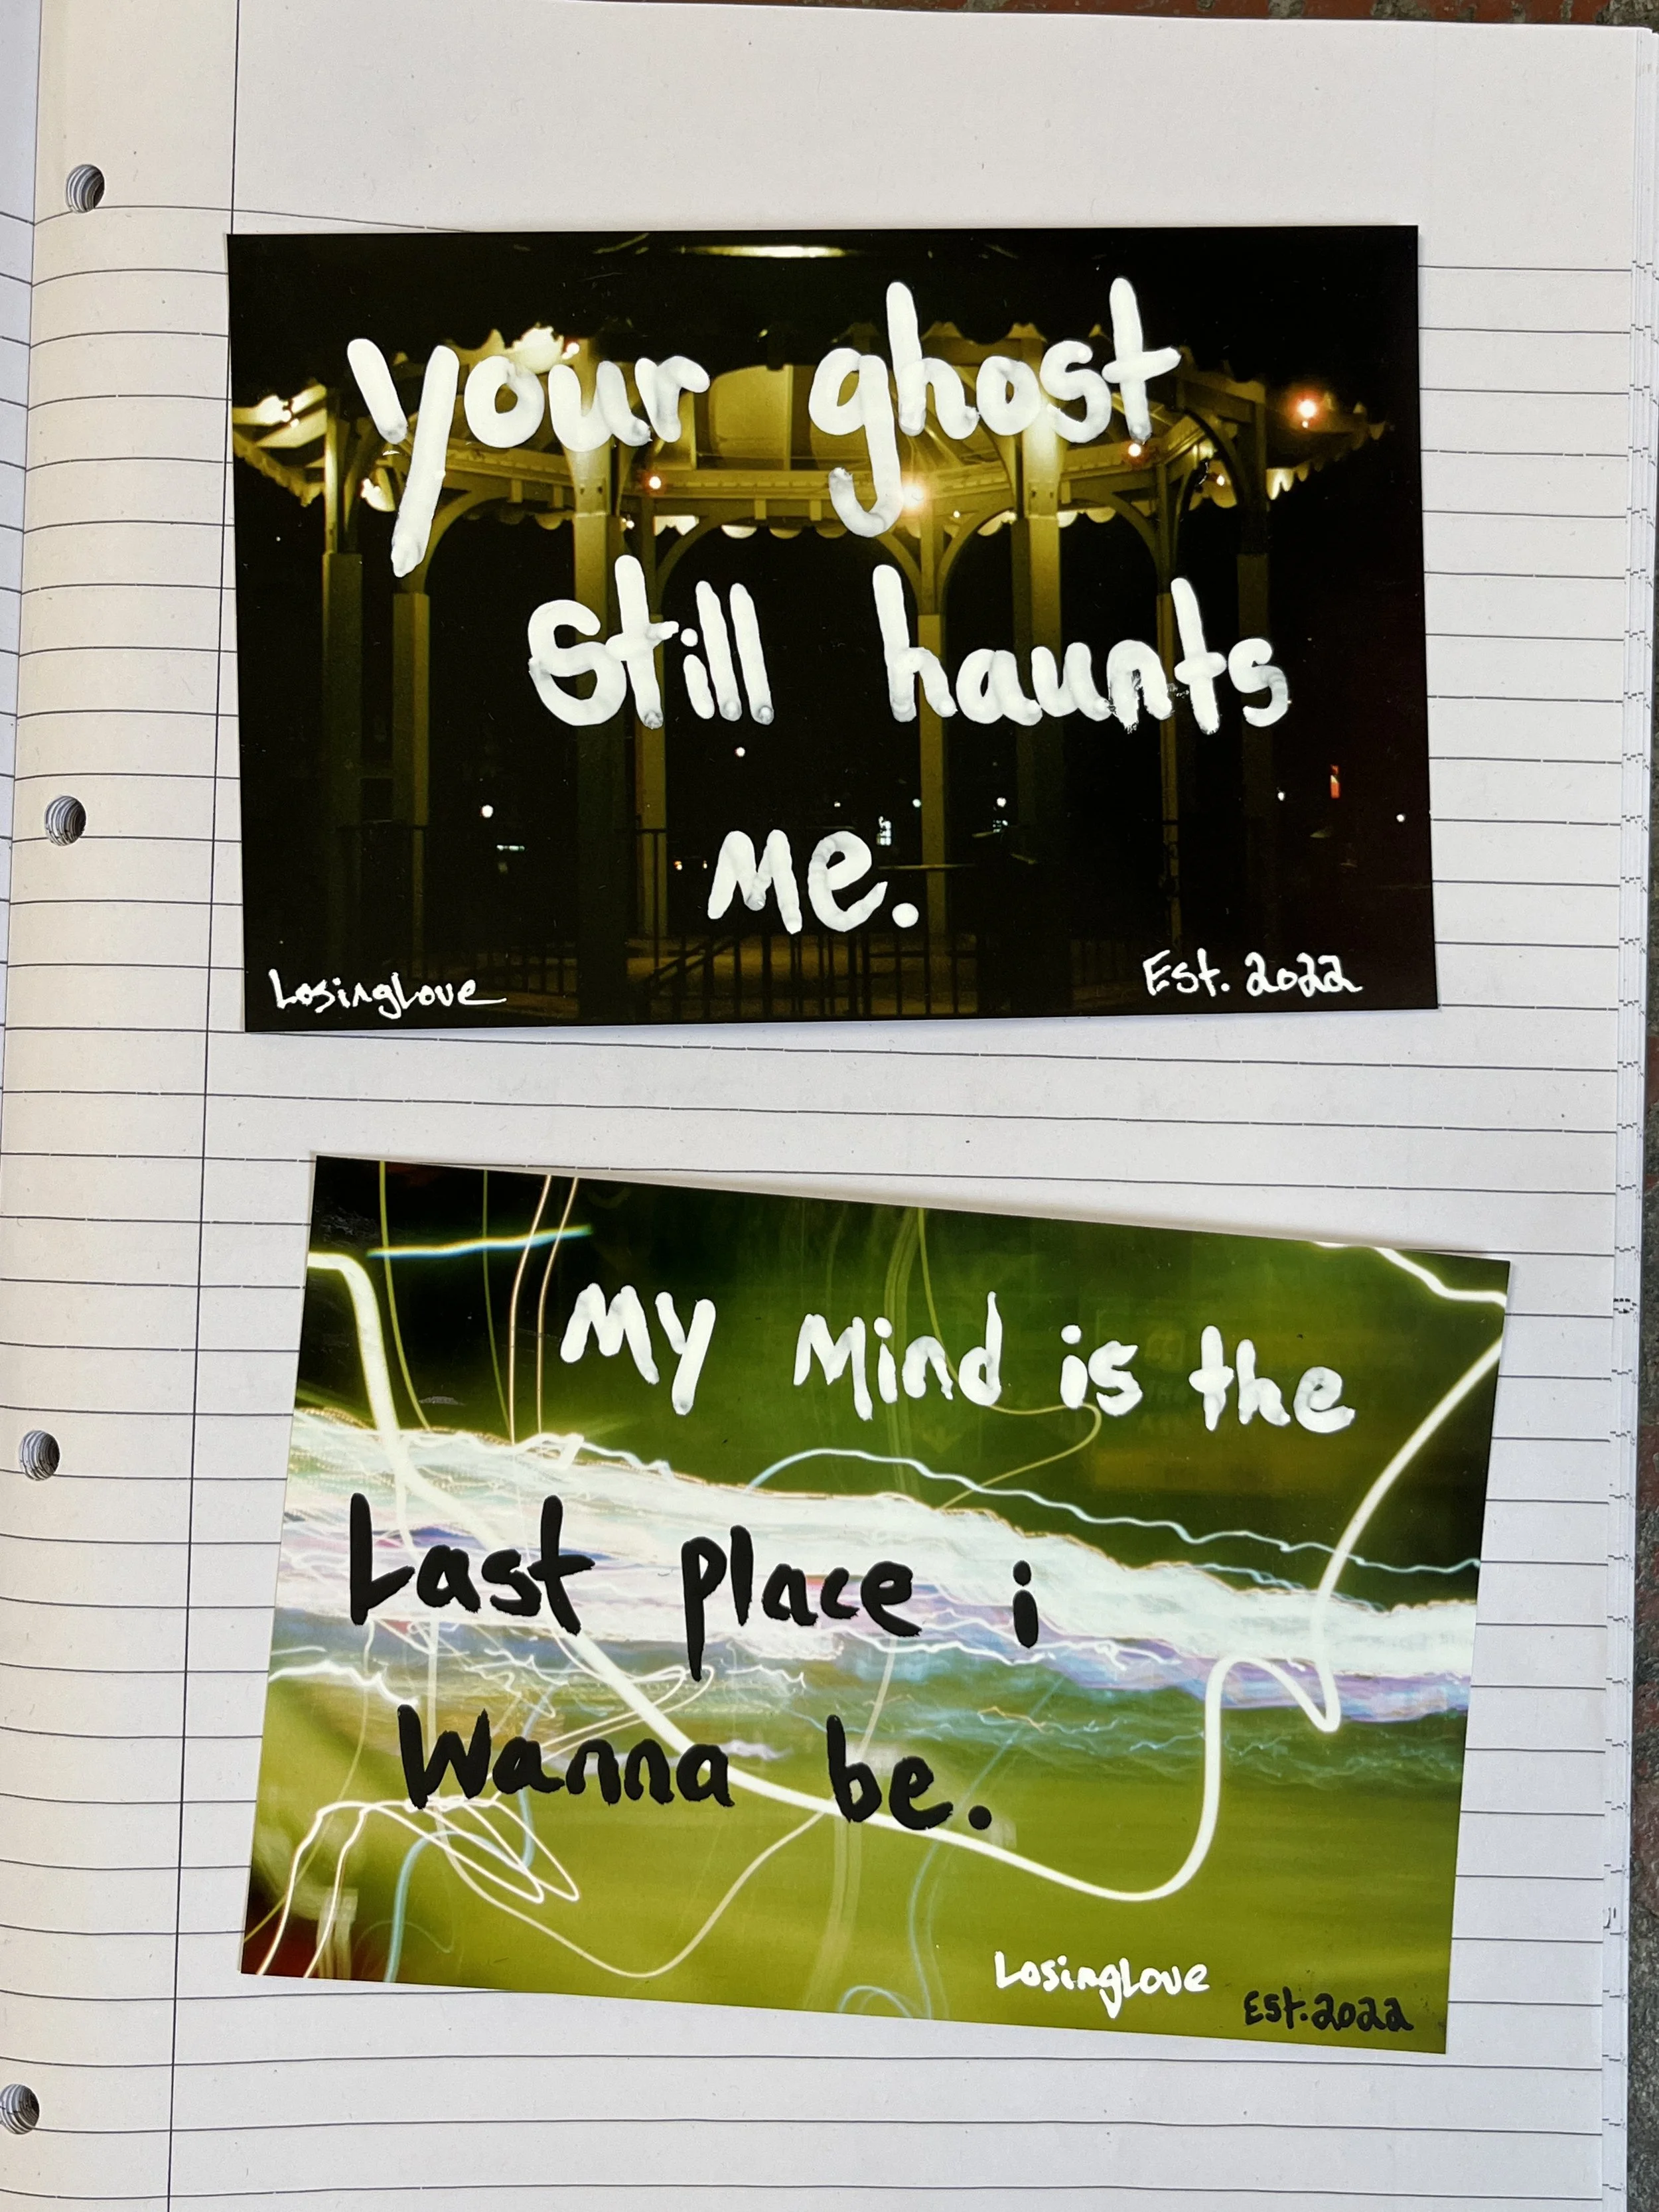 your ghost
still haunts
me.
LosingLove
Est. 2022
My Mind is the
Last place i
Wanna be.
LosingLove
Est. 2022